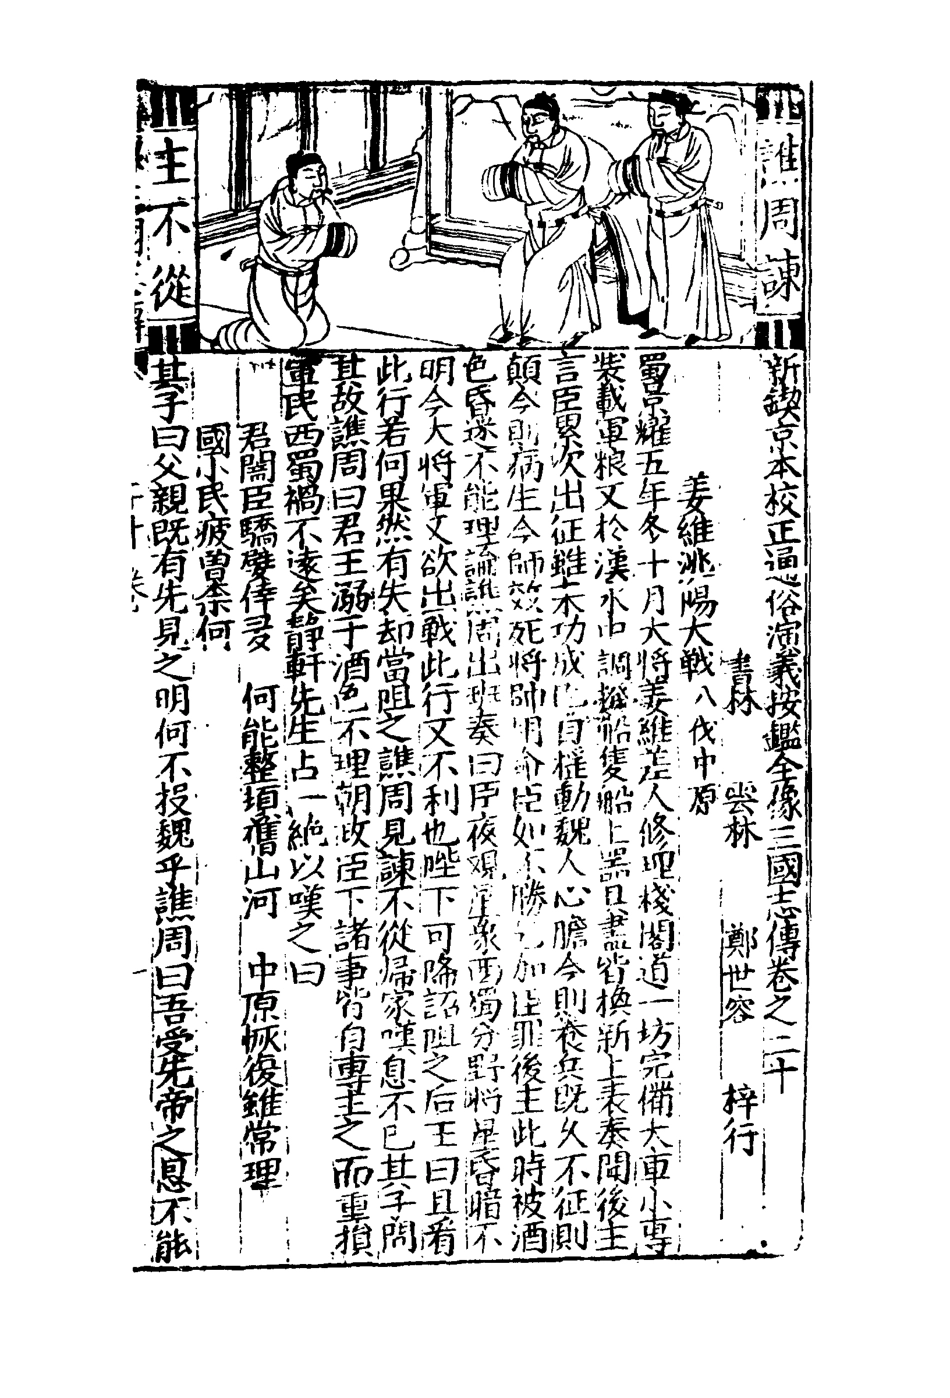 譙周諫
主不從
新鍥京本校正通俗演義按鑑全像三國志傳卷之二十
書林 雲林 鄭世容 梓行
姜維洮陽大戰 八伐中原
蜀景耀五年冬十月大將姜維差人修理棧閣道一坊完備大車小專
裝載軍粮又於漢水中調撥船隻船上噐具盡皆換新上表奏聞後主
言臣累次出征雖未功成已自搖動魏人心膽今則養兵既久不征則
顛今則病生今師效死將帥用命臣如不勝 加臣罪後主此時被酒
色昏迷不能理論譙周出班奏曰臣夜觀星象西蜀分野將星昏暗不
明今大將軍又欲出戰此行又不利也陛下可降詔阻之后王曰且看
此行若何果然有失却當阻之譙周見諫不從歸家嘆息不已其子問
其故譙周曰君王溺于酒色不理朝政臣下諸事皆自專主之而重損
軍民西蜀禍不遠矣靜軒先生占一絕以嘆之曰
君闇臣驕嬖倖多 何能整頓舊山河 中原恢復雖常理
國小民疲曾柰何
其子曰父親既有先見之明何不投魏乎譙周曰吾受先帝之恩不能